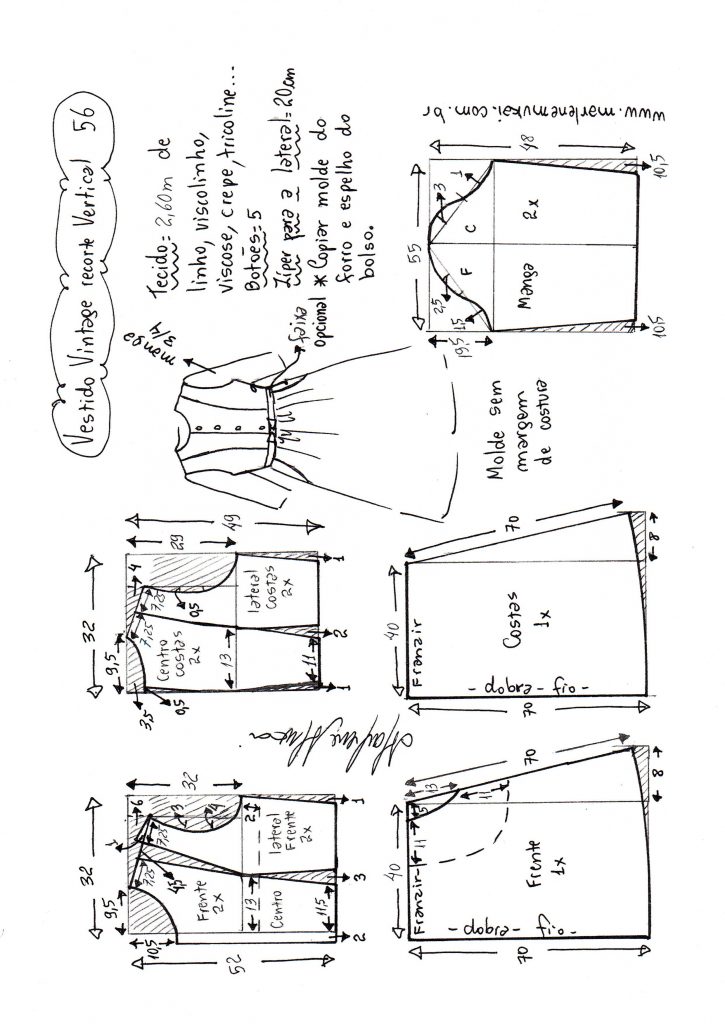 Vestido Vintage recorte Vertical 56
Tecido = 2,60m de
linho, viscolinho,
viscose, crepe, tricoline...
Botões = 5
Zíper para a lateral = 20cm
* Copiar molde do
forro e espelho do
bolso.
manga
3/4
faixa
opcional
Molde sem
margem
de costura
www.marlenemukai.com.br
55
48
19,5
2,5
1,5
3
1
F
C
Manga
2x
10,5
10,5
32
49
29
9,5
3,5
0,5
4
7,25
7,25
0,5
Centro
costas
2x
lateral
costas
2x
13
11
1
2
1
40
70
70
8
Franzir
Costas
1x
- dobra - fio -
Marlene Mukai
32
52
32
9,5
10,5
6
1
7,25
7,25
4,5
3
4
2
Frente
2x
Centro
lateral
Frente
2x
13
11,5
2
3
1
40
70
70
8
13
5
11
11
Franzir
Frente
1x
- dobra - fio -